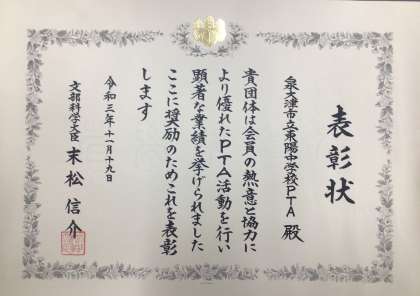 表彰状
泉大津市立東陽中学校PTA 殿
貴団体は会員の熱意と協力に
より優れたPTA活動を行い
顕著な業績を挙げられました
ここに奨励のためこれを表彰
します
令和三年十一月十九日
文部科学大臣 末松信介